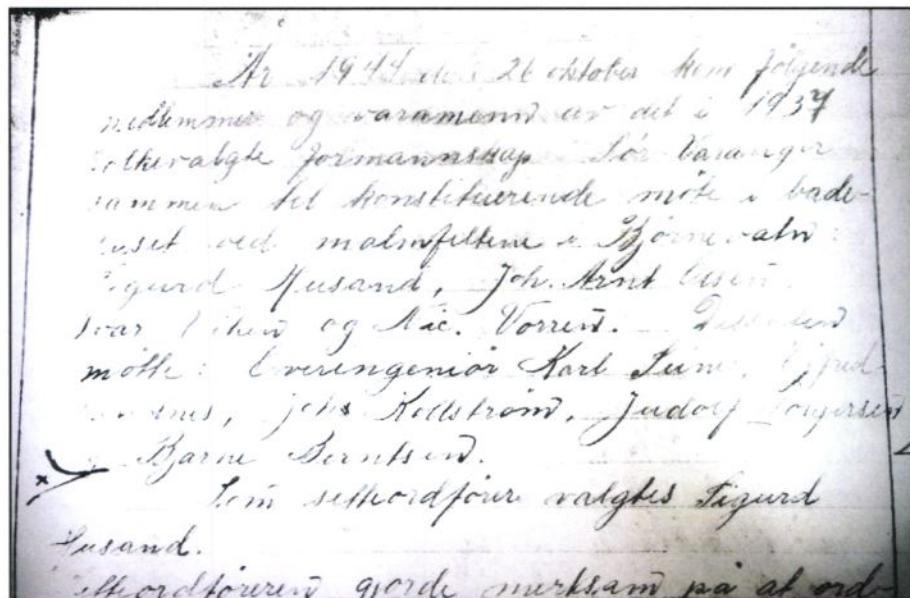 År 1944 den 26 oktober kom følgende
medlemmer og varamenn av det i 1937
folkevalgte formannskap Sør Varanger
sammen til konstituerende møte i bade-
huset ved malmfeltene i Bjørnevatn:
Sigurd Husand, Joh. Arnt Olsen,
Ivar og Nic. Vorren. Dessuten
møtte: Overengeniør Karl
Johs Kollstrøm, Torgersen
Bjarne Berntsen.
Som setteordfører valgtes Sigurd
Husand.
Setteordføreren gjorde merksam på at ord-